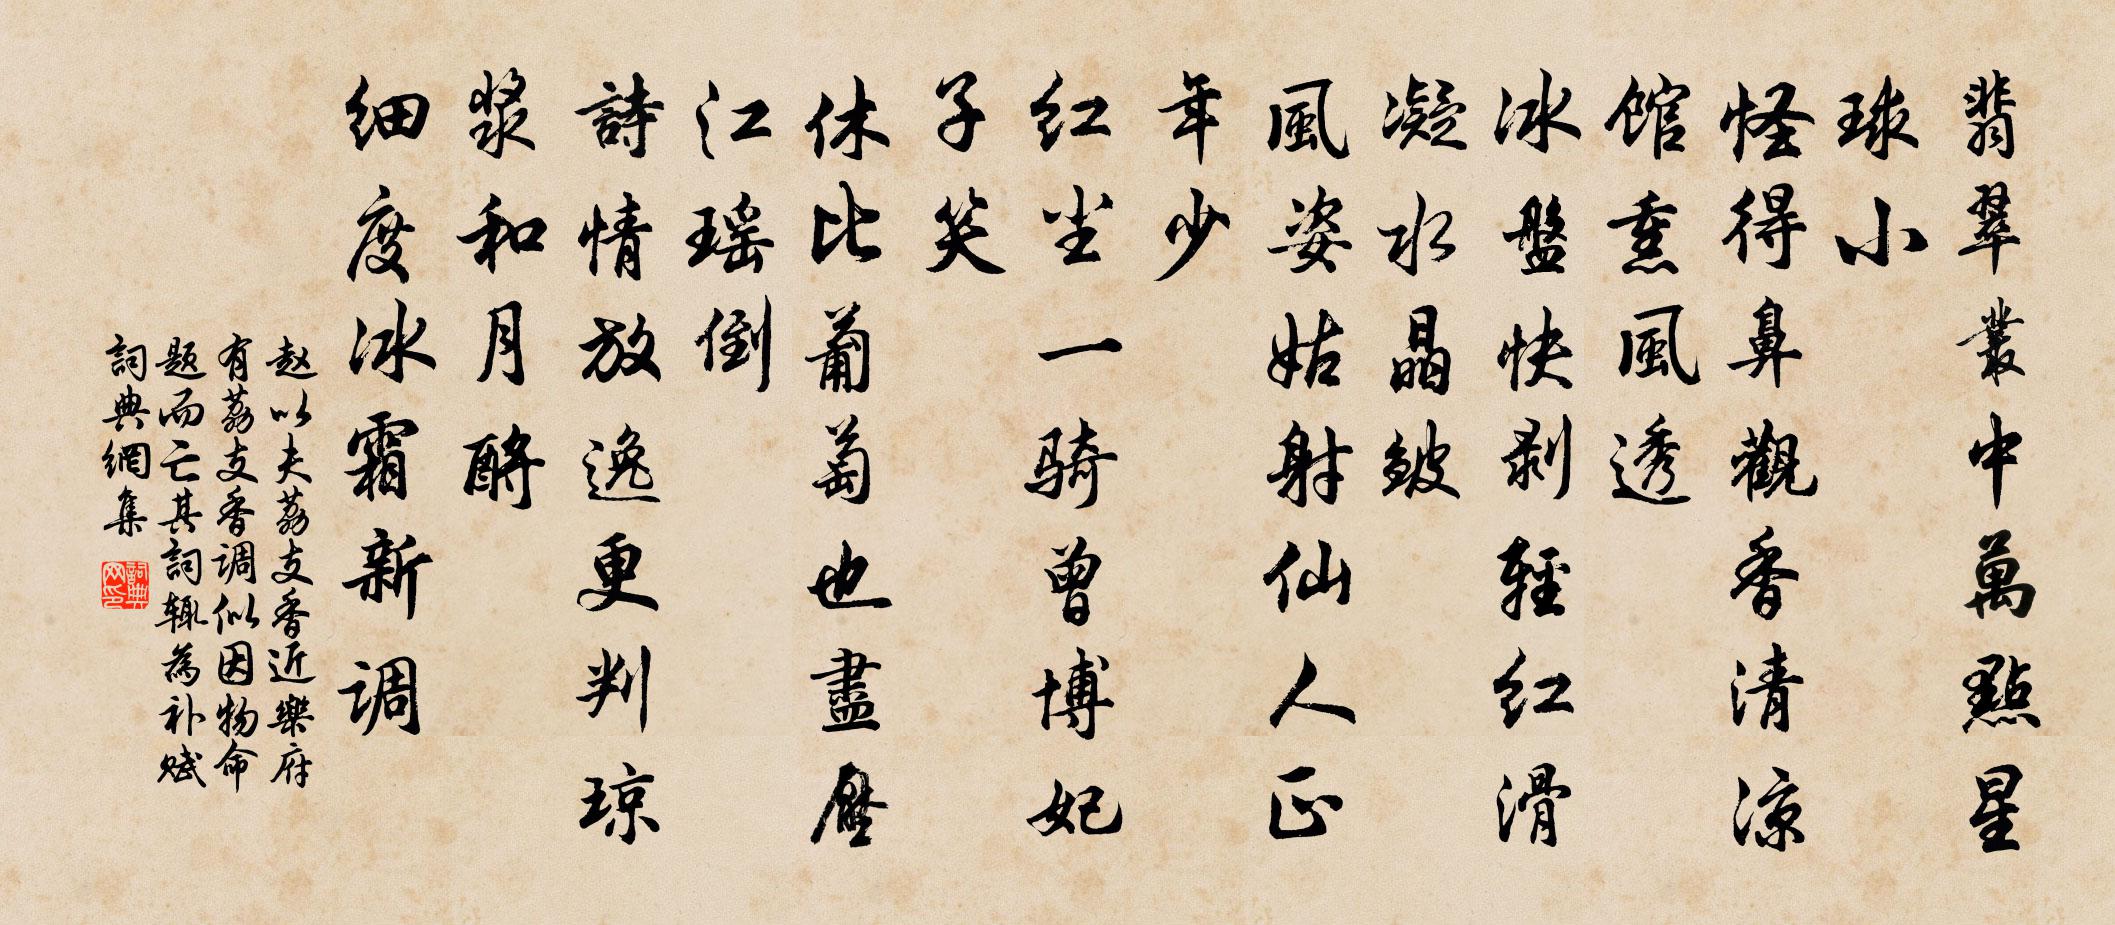 翡翠叢中萬點星
球小
怪得鼻觀香清涼
馆熏風透
冰盤快剥輕红滑
凝水晶皱
風姿姑射仙人正
年少
红尘一骑曾博妃
子笑
休比葡萄也盡壓
江瑶倒
詩情放逸更判琼
漿和月酹
细度冰霜新调
赵以夫荔支香近樂府
有荔支香调似因物命
题而亡其詞辄為补赋
詞典網集
詞典网印